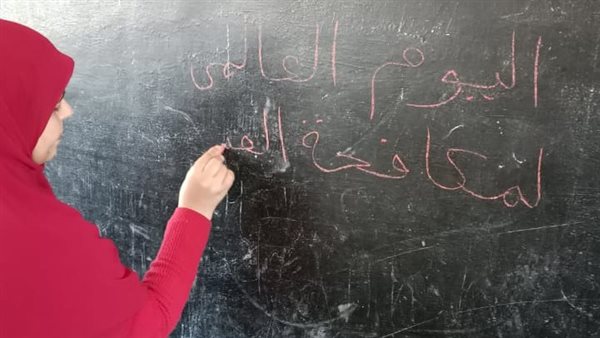 اليوم العالمى
لمكافحة الف